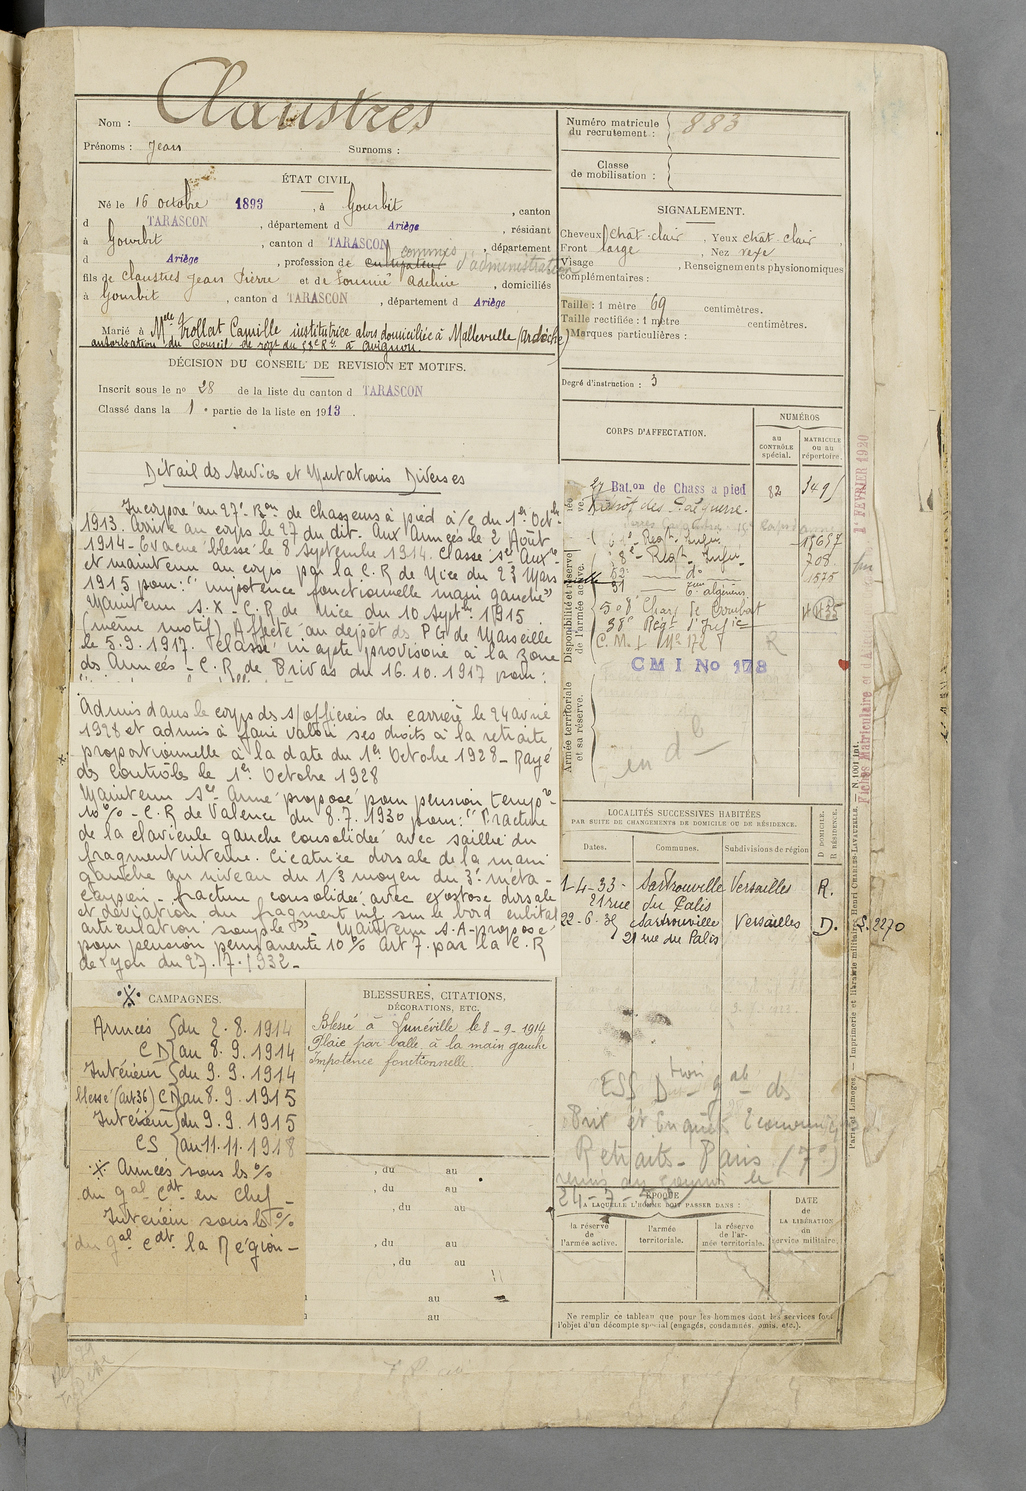 Nom : Claustres
Prénoms : Jean Surnoms :
ÉTAT CIVIL
Né le 16 octobre 1893, à Gourbit, canton
d TARASCON, département d Ariège, résidant
à Gourbit, canton d TARASCON, département
d Ariège, profession de cultivateur commis d'administration
fils de Claustres Jean Pierre et de Adeline, domiciliés
à Gourbit, canton d TARASCON, département d Ariège
Marié à Mlle Camille institutrice alors domiciliée à (Ardèche)
autorisation du Conseil de à Avignon.
DÉCISION DU CONSEIL DE REVISION ET MOTIFS.
Inscrit sous le no 28 de la liste du canton d TARASCON
Classé dans la 1e partie de la liste en 1913.
Détail des Services et Mutations Diverses
Incorporé au 27e Bon de chasseurs à pied à/c du 1er Octbre
1913. Arrivé au corps le 27 du dit. Aux Armées le 2 Août
1914 - Evacué blessé le 8 Septembre 1914. Classé Sce Auxre
et maintenu au corps par la C.R de Nice du 23 Mars
1915 pour: "impotence fonctionnelle main gauche"
Maintenu S.X - C.R de Nice du 10 Sept. 1915
(même motif) Affecté au dépôt ds PG de Marseille
le 5.9.1917. Classé inapte provisoire à la Zone
ds Armées - C.R de Privas du 16.10.1917 pour:
Admis dans le corps ds s/officiers de carrière le 24 avril
1928 et admis à faire valoir ses droits à la retraite
proportionnelle à la date du 1er Octobre 1928 - Rayé
ds contrôles le 1er Octobre 1928
Maintenu Sce Armé proposé pour pension tempre
10 % - C.R de Valence du 8.7.1930 pour: "Fracture
de la clavicule gauche consolidée avec saillie du
fragment interne. Cicatrice dorsale de la main
gauche au niveau du 1/3 moyen du 3e méta-
carpien - fracture consolidée avec exostose dorsale
et déviation du fragment inf. sur le bord cubital
articulation souple" - Maintenu S.A-proposé
pour pension permanente 10 % Art 7. par la C.R
de Lyon du 27.7.1932 -
CAMPAGNES.
Armées {du 2.8.1914
CD {au 8.9.1914
Intérieur {du 9.9.1914
blessé (art 36) CD {au 8.9.1915
Intérieur {du 9.9.1915
CS {au 11.11.1918
Armées sous ls %
du gal Cdt en chef -
Intérieur sous ls %
du gal Cdt la Région -
BLESSURES, CITATIONS,
DÉCORATIONS, ETC.
Blessé à Lunéville le 8-9-1914
Plaie par balle à la main gauche
Impotence fonctionnelle
, du au
, du au
, du au
, du au
, du au
au
au
Numéro matricule du recrutement : 883
Classe de mobilisation :
SIGNALEMENT.
Cheveux chat-clair, Yeux chat clair
Front large, Nez
Visage , Renseignements physionomiques
complémentaires :
Taille : 1 mètre 69 centimètres.
Taille rectifiée : 1 mètre centimètres.
Marques particulières :
Degré d'instruction : 3
CORPS D'AFFECTATION.
NUMÉROS
au CONTRÔLE spécial.
MATRICULE ou au répertoire.
27 Bat.on de Chass a pied 82 3491
Dépôt des P. de guerre.
Disponibilité et réserve de l'armée active.
508e Chars de Combat
38e Régt d'Infie
C.M.I No 172 R
CMI No 178
Armée territoriale et sa réserve.
LOCALITÉS SUCCESSIVES HABITÉES
PAR SUITE DE CHANGEMENTS DE DOMICILE OU DE RÉSIDENCE.
Dates. Communes. Subdivisions de région D DOMICILE. R RÉSIDENCE.
1-4-33 - Sartrouville Versailles R.
21 rue du Palis
22-6-38 Sartrouville Versailles D. S. 2270
21 rue du Palis
Prix et Enquêtes
Retraits - Paris (7e)
24-7-
ÉPOQUE
A LAQUELLE L'HOMME DOIT PASSER DANS :
la réserve de l'armée active.
l'armée territoriale.
la réserve de l'armée territoriale.
DATE de LA LIBÉRATION du service militaire.
Ne remplir ce tableau que pour les hommes dont les services font
l'objet d'un décompte spécial (engagés, condamnés, omis, etc.).
Paris et Limoges. — Imprimerie et librairie militaires Henri CHARLES-LAVAUZELLE. — N. 1001 int.
1er FEVRIER 1920